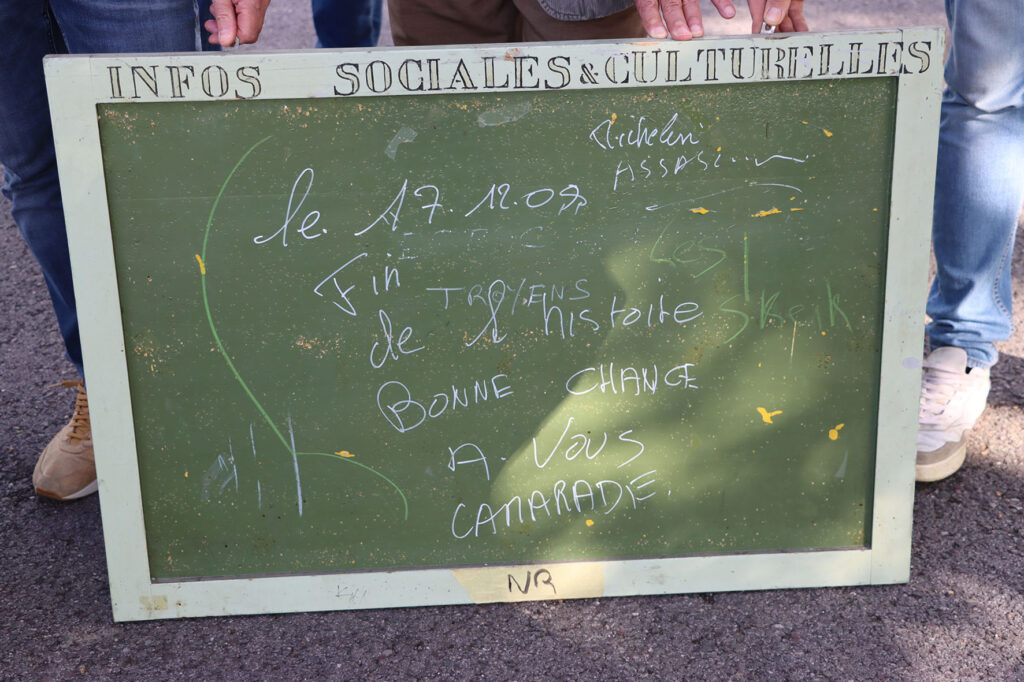 INFOS SOCIALES & CULTURELLES
Michelin
le. 17.12.09
Les
Fin
TROYENS
de l'histoire
BONNE CHANCE
A. VOUS
CAMARADE.
NR